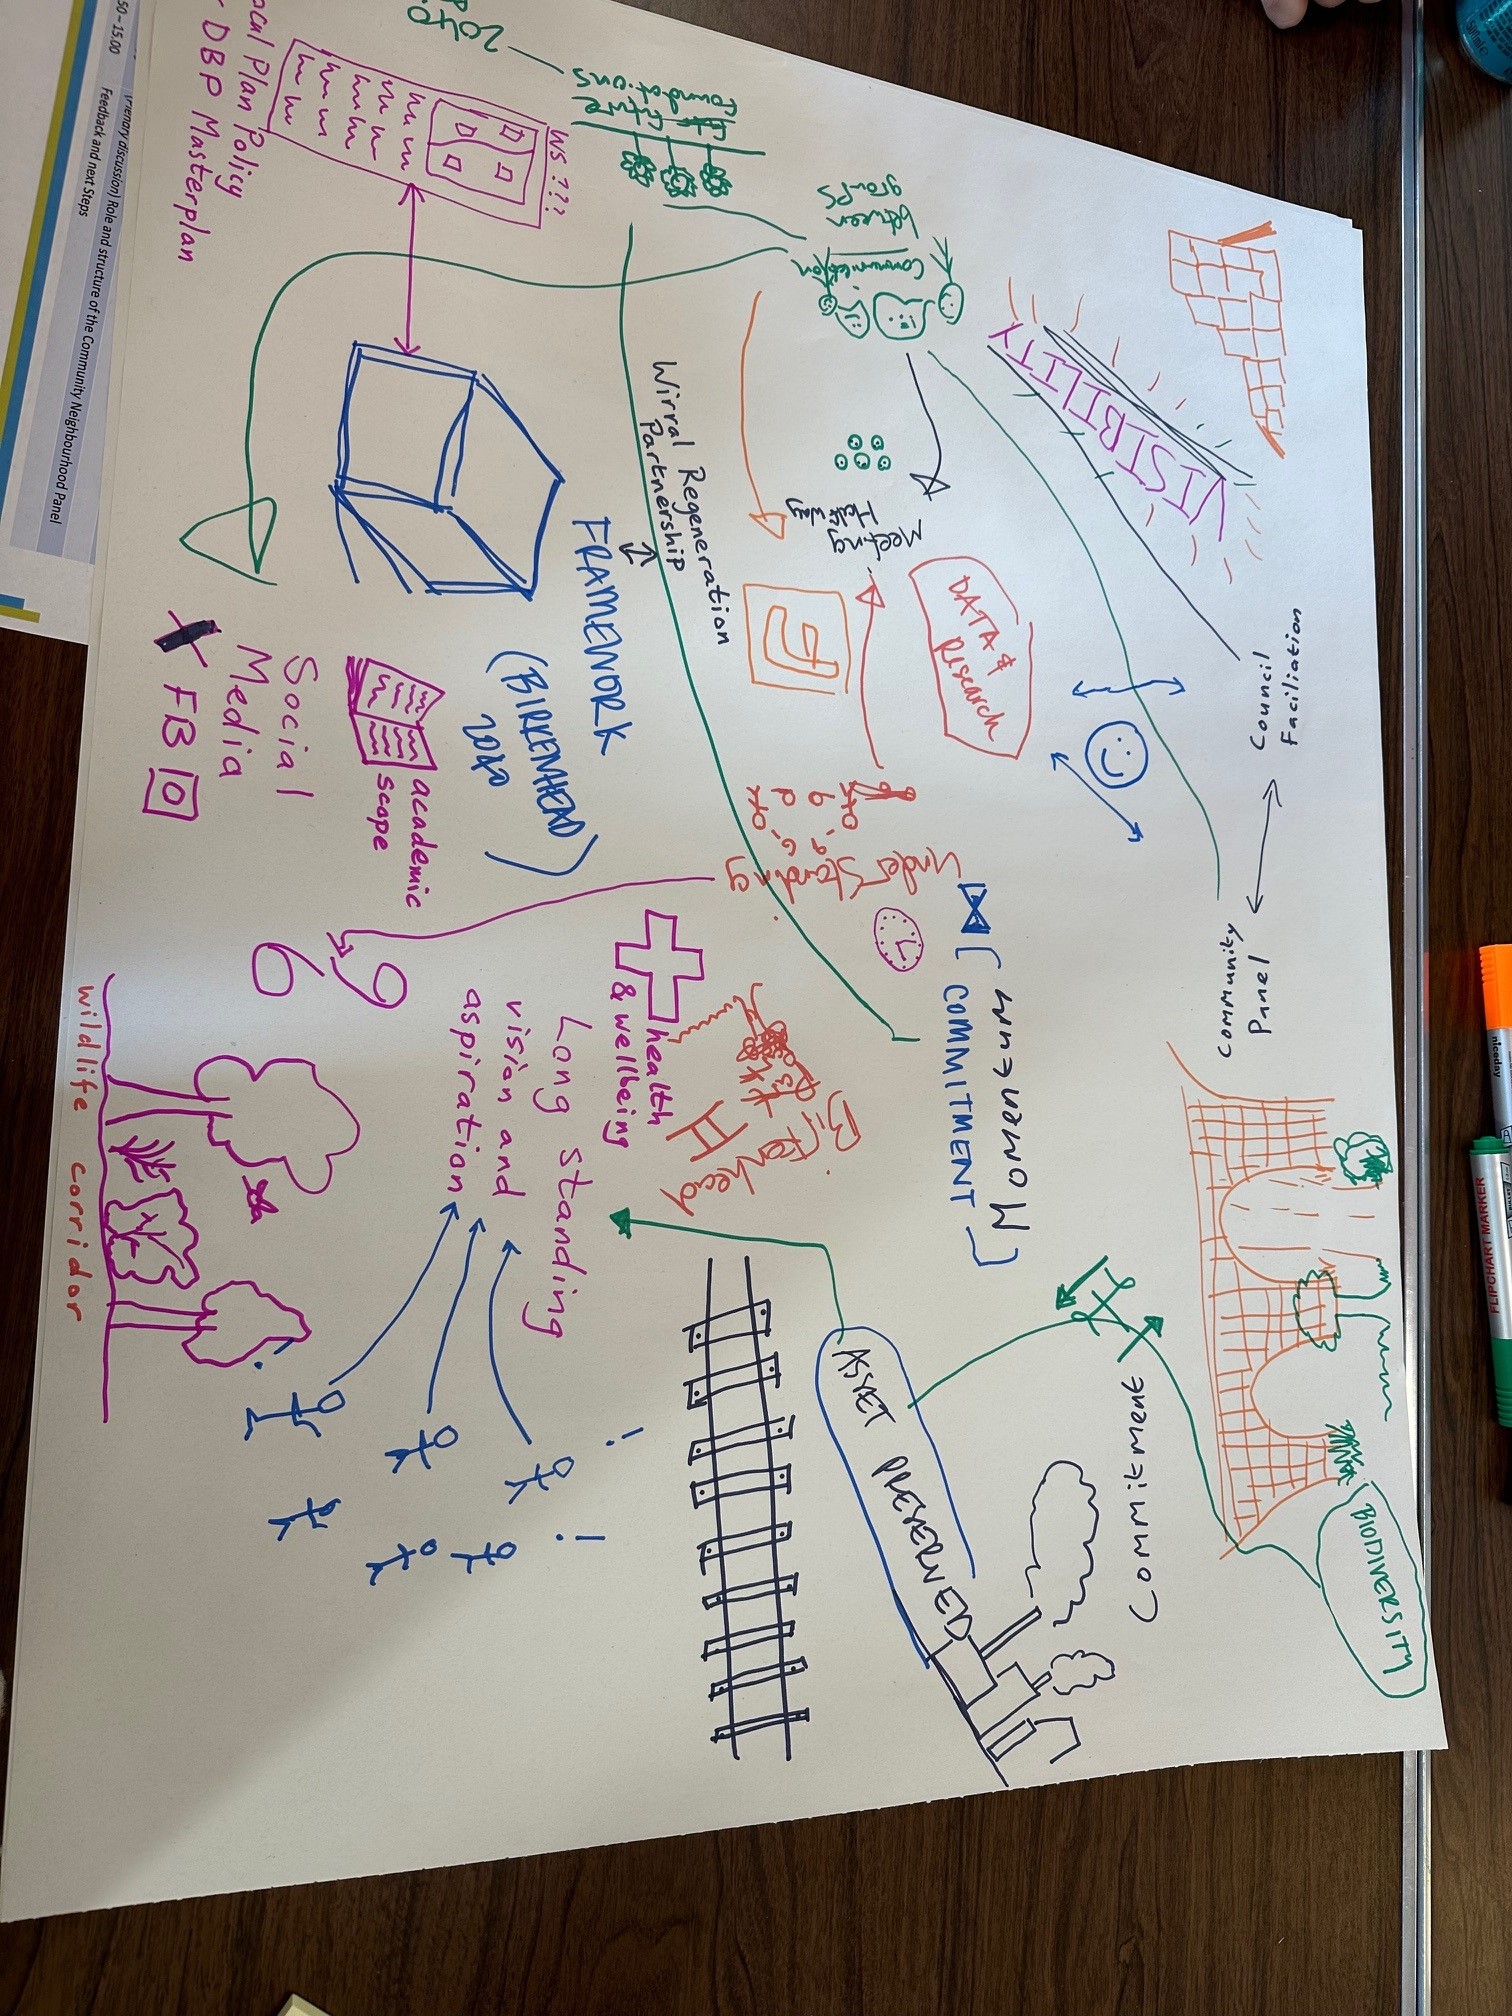 2040
Future
Foundations
between
groups
Communication
WS ???
ocal Plan Policy
DBP Masterplan
50 – 15.00
(Plenary discussion) Role and structure of the Community Neighbourhood Panel
Feedback and next Steps
VISIBILITY
Council
Faciliation
Community
Panel
Meeting
Half way
DATA &
Research
Wirral Regeneration
Partnership
FRAMEWORK
(BIRKENHEAD)
2040
academic
scope
Social
Media
X FB
Understanding
Momentum
[COMMITMENT]
health
& wellbeing
Birkenhead
69
Long standing
vision and
aspiration
wildlife corridor
Commitment
ASSET
BIODIVERSITY
niceday
FLIPCHART MARKER